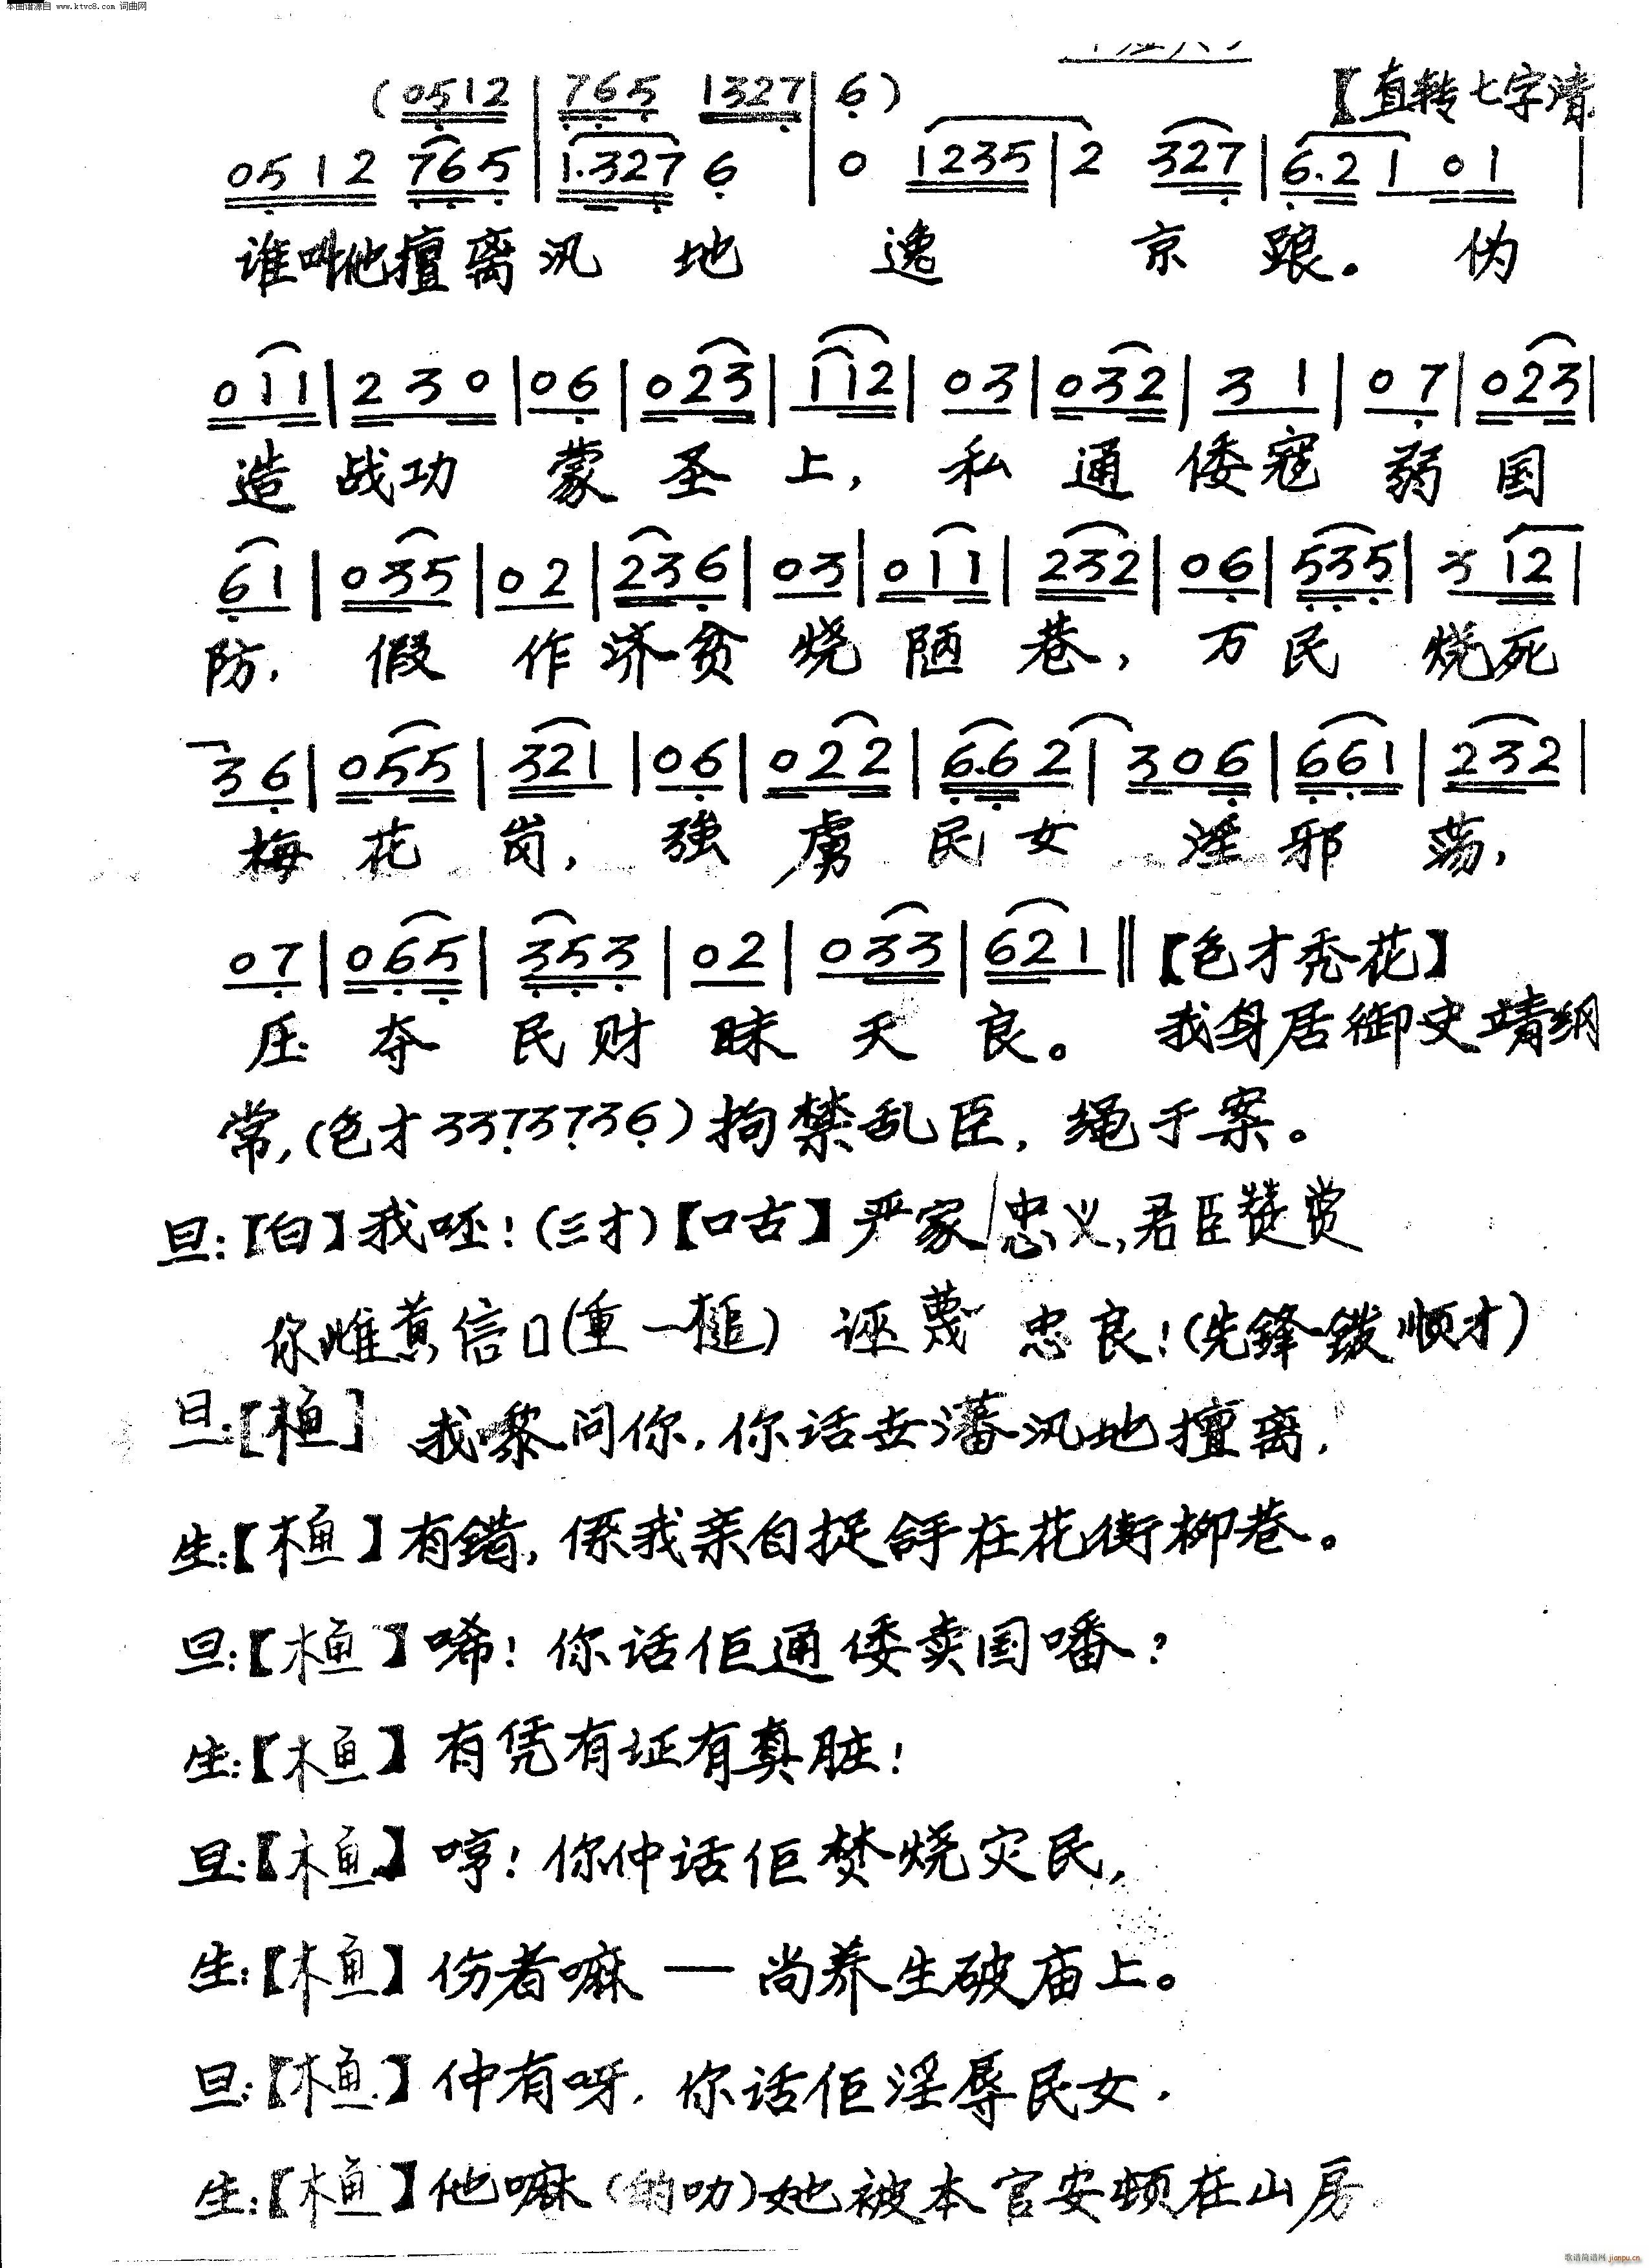 本曲谱源自 www.ktvc8.com 词曲网
【直转七字清
(0512 | 765 1327 | 6)
0512 765 | 1.327 6 | 0 1235 | 2 327 | 6.2 1 01 |
谁叫他擅离汛地逸京踉。伪
011 | 230 | 06 | 023 | 112 | 03 | 032 | 31 | 07 | 023 |
造战功蒙圣上,私通倭寇弱国
61 | 035 | 02 | 236 | 03 | 011 | 232 | 06 | 535 | 312 |
防,假作济贫烧陋巷,万民烧死
36 | 055 | 321 | 06 | 022 | 6.62 | 306 | 661 | 232 |
梅花岗,强虏民女淫邪荡,
07 | 065 | 353 | 02 | 033 | 621 ‖【色才秃花】
压夺民财昧天良。我身居御史靖纲
常,(色才3373736)拘禁乱臣,绳于案。
旦:【白】我呸!(三才)【口古】严家忠义,君臣赞赏
你雌黄信口(重一槌)诬蔑忠良!(先锋钹顺才)
旦:[木鱼] 我嚟问你,你话世潘汛地擅离,
生:【木鱼】冇错,係我亲自捉舒在花街柳巷。
旦:【木鱼】唏!你话佢通倭卖国噃?
生:【木鱼】有凭有证有真脏!
旦:【木鱼】哼!你仲话佢焚烧灾民,
生:【木鱼】伤者嘛—尚养生破庙上。
旦:【木鱼】仲有呀,你话佢淫辱民女,
生:【木鱼】他嘛(的叻)她被本官安顿在山房
歌谱简谱网 jianpu.cn